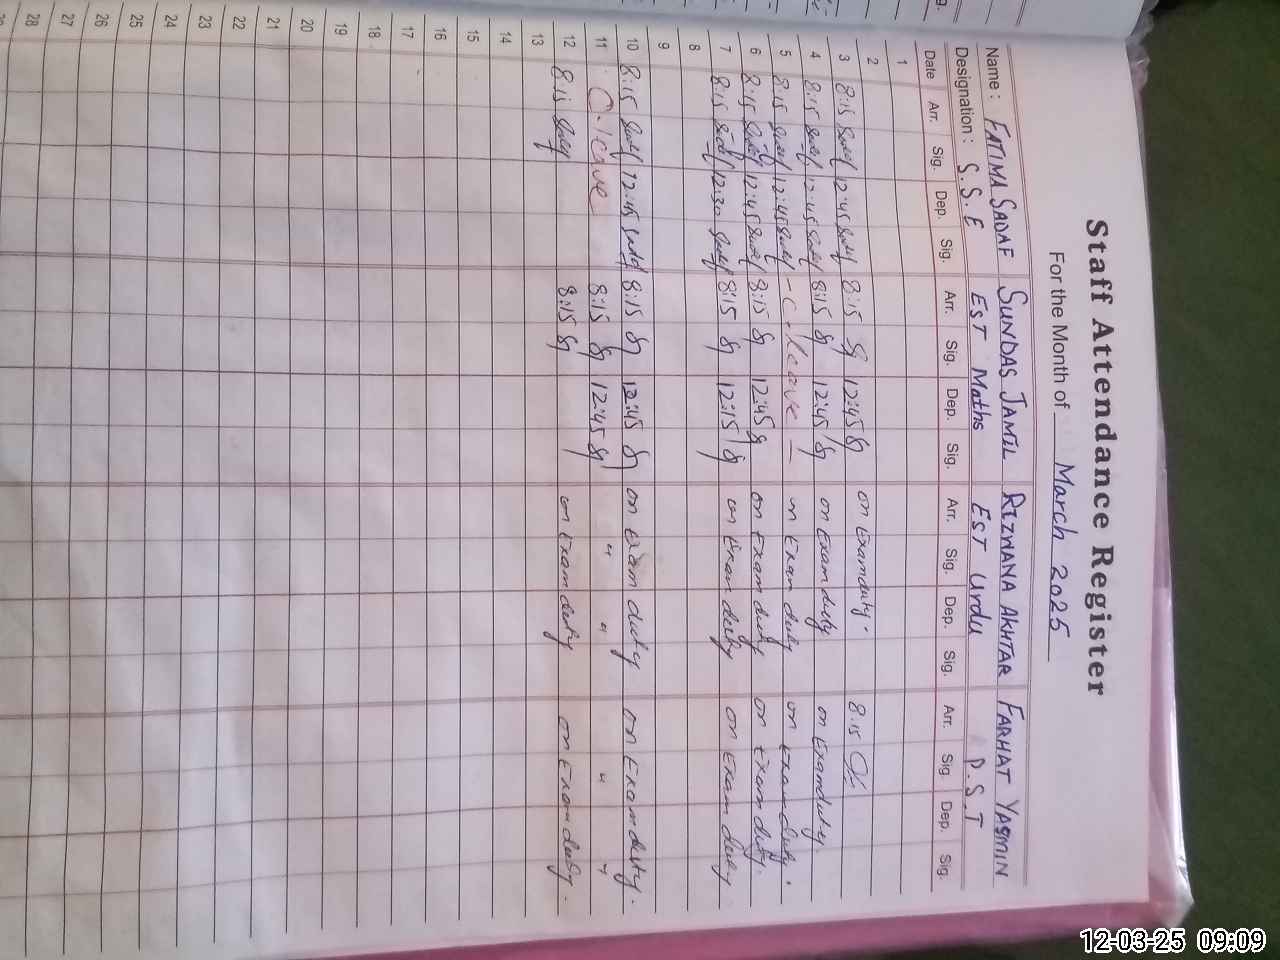 Staff Attendance Register
For the Month of March 2025
Name: FATIMA SADAF SUNDAS JAMIL RIZWANA AKHTAR FARHAT YASMIN
Designation: S.S.E EST Maths EST Urdu P.S.T
Date Arr. Sig. Dep. Sig. Arr. Sig. Dep. Sig. Arr. Sig. Dep. Sig. Arr. Sig. Dep. Sig.
1
2
3 8:15 12:45 8:15 12:45 on Exam duty. 8:15
4 8:15 12:45 8:15 12:45 on Exam duty on Exam duty.
5 8:15 12:45 - C. leave - on Exam duty on exam duty.
6 8:15 12:45 8:15 12:45 on Exam duty on Exam duty.
7 8:15 12:30 8:15 12:15 on Exam duty on Exam duty
8
9
10 8:15 12:45 8:15 12:45 on Exam duty on Exam duty.
11 C. leave 8:15 12:45 " " " "
12 8:15 8:15 on Exam duty on Exam duty.
13
14
15
16
17
18
19
20
21
22
23
24
25
26
27
28
12-03-25 09:09